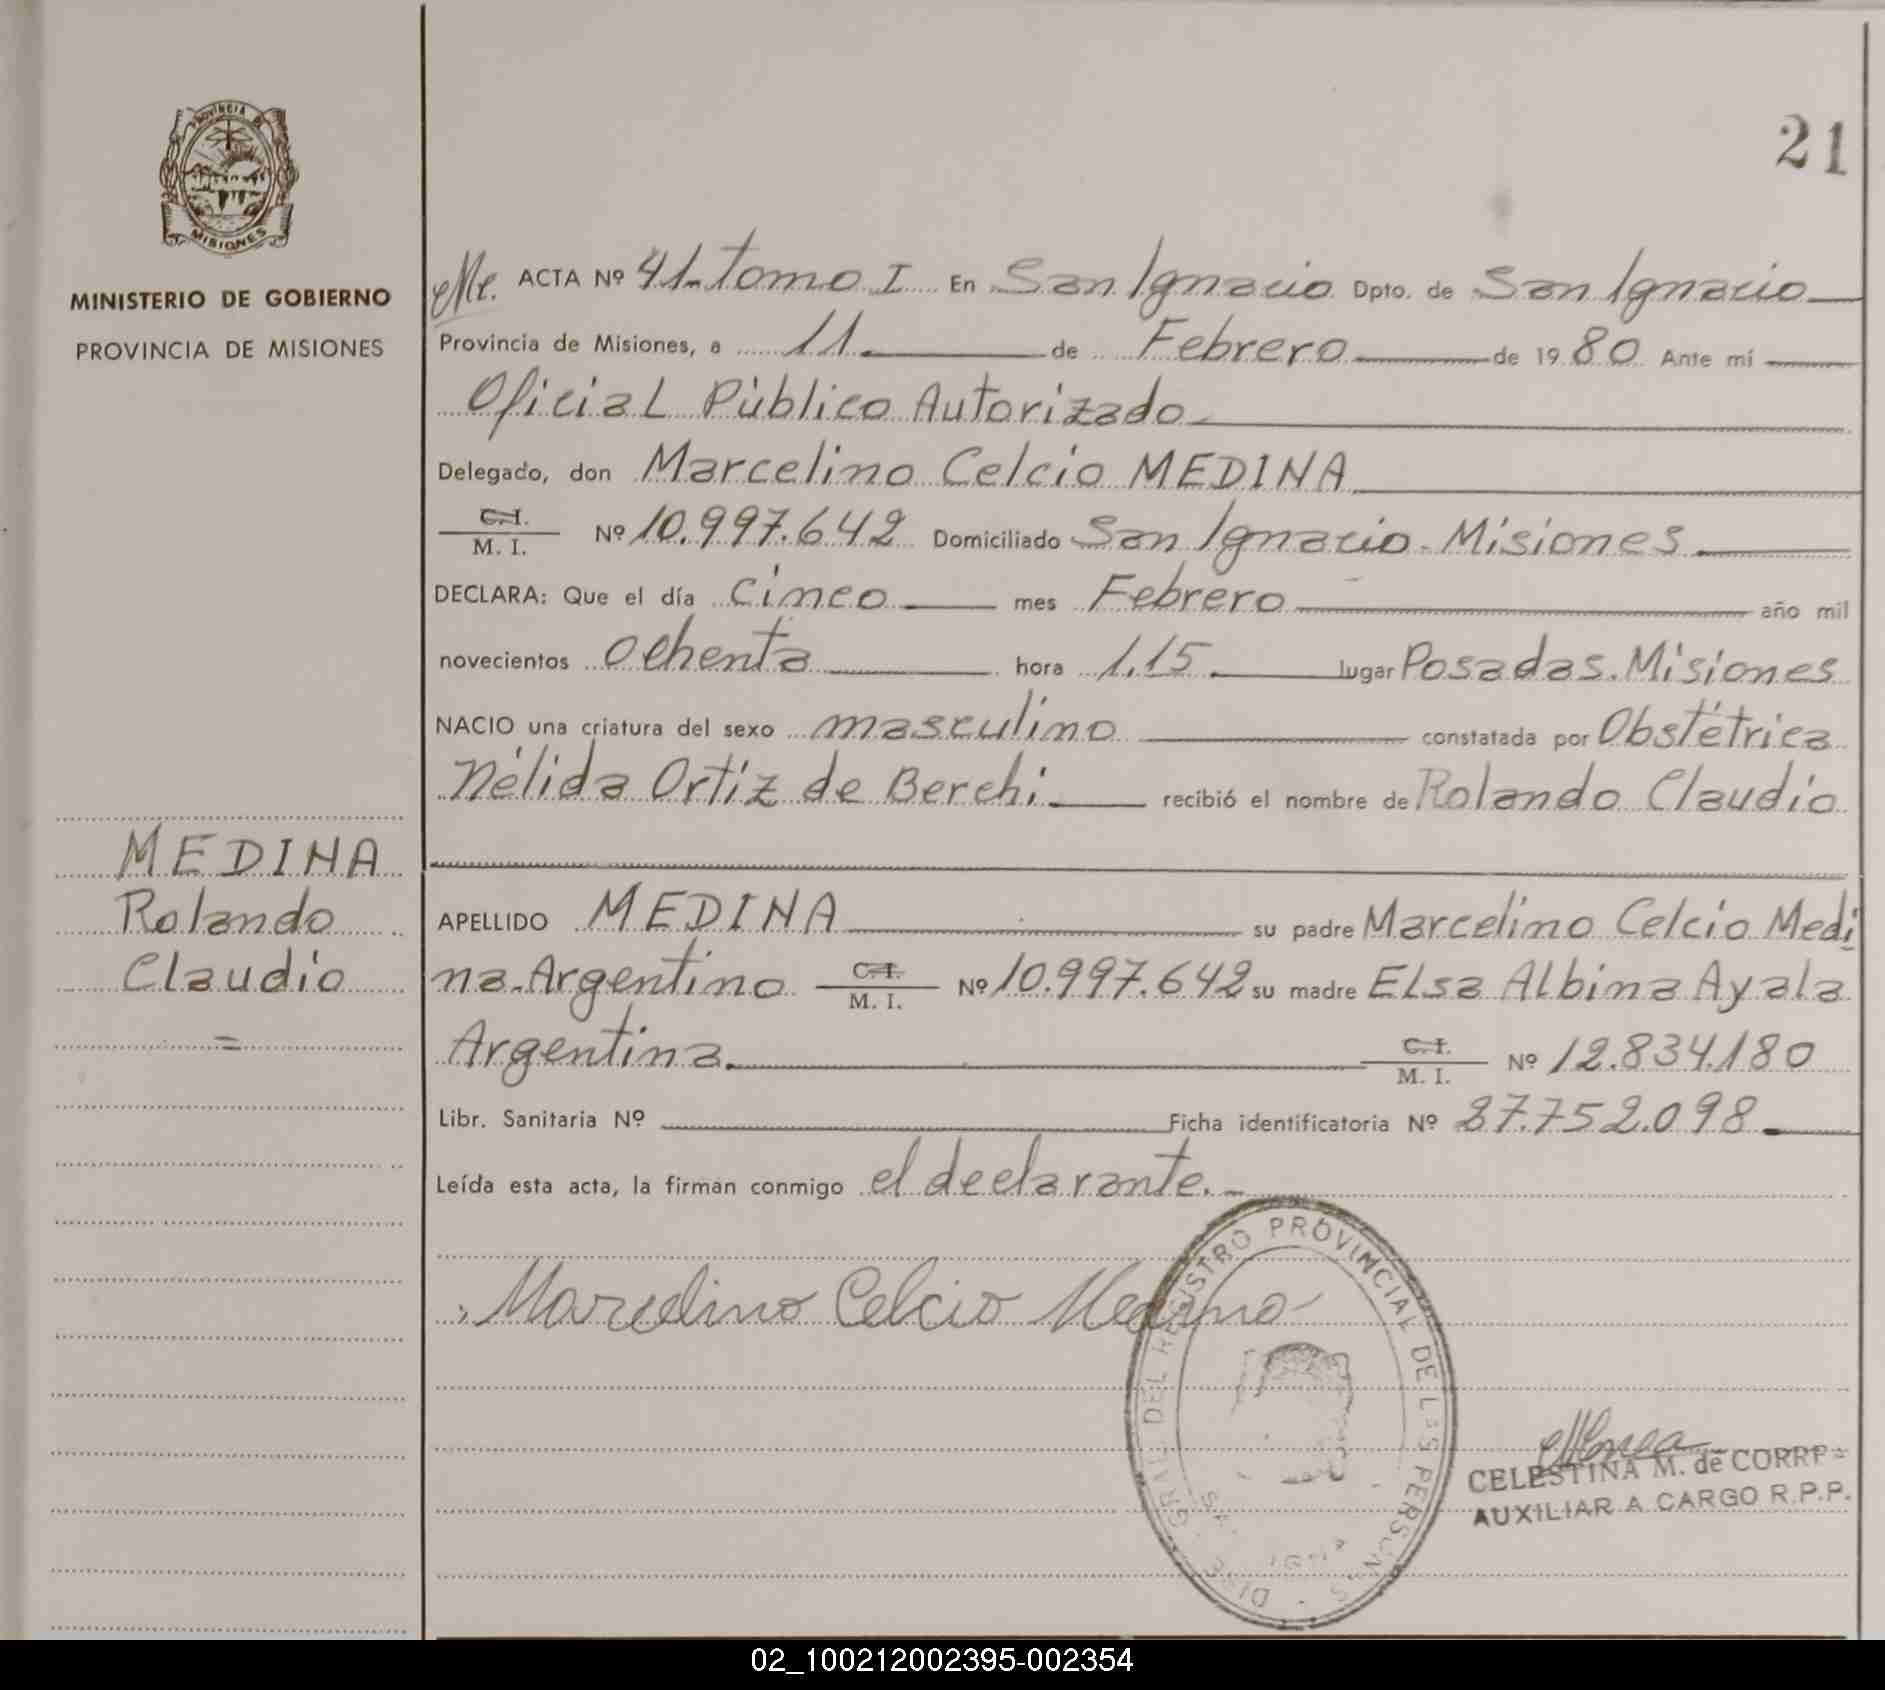 PROVINCIA DE
MISIONES
MINISTERIO DE GOBIERNO
PROVINCIA DE MISIONES
MEDINA
Rolando
Claudio
=
21
ACTA Nº 41-Tomo I En San Ignacio Dpto. de San Ignacio
Provincia de Misiones, a 11. de Febrero de 1980 Ante mí
Oficial Público Autorizado
Delegado, don Marcelino Celcio MEDINA
C.I. / M. I. Nº 10.997.642 Domiciliado San Ignacio-Misiones
DECLARA: Que el día cinco mes Febrero año mil
novecientos ochenta hora 1.15 lugar Posadas.Misiones
NACIO una criatura del sexo masculino constatada por Obstétrica
Nélida Ortiz de Berchi. recibió el nombre de Rolando Claudio
APELLIDO MEDINA su padre Marcelino Celcio Medi
na.Argentino C.I. / M. I. Nº 10.997.642 su madre Elsa Albina Ayala
Argentina. C.I. / M. I. Nº 12.834.180
Libr. Sanitaria Nº Ficha identificatoria Nº 27.752.098.
Leída esta acta, la firman conmigo el declarante.-
Marcelino Celcio Medina
GRAL. DEL REGISTRO PROVINCIAL DE LAS PERSONAS
CELESTINA M. de
AUXILIAR A CARGO R.P.P.
02_100212002395-002354